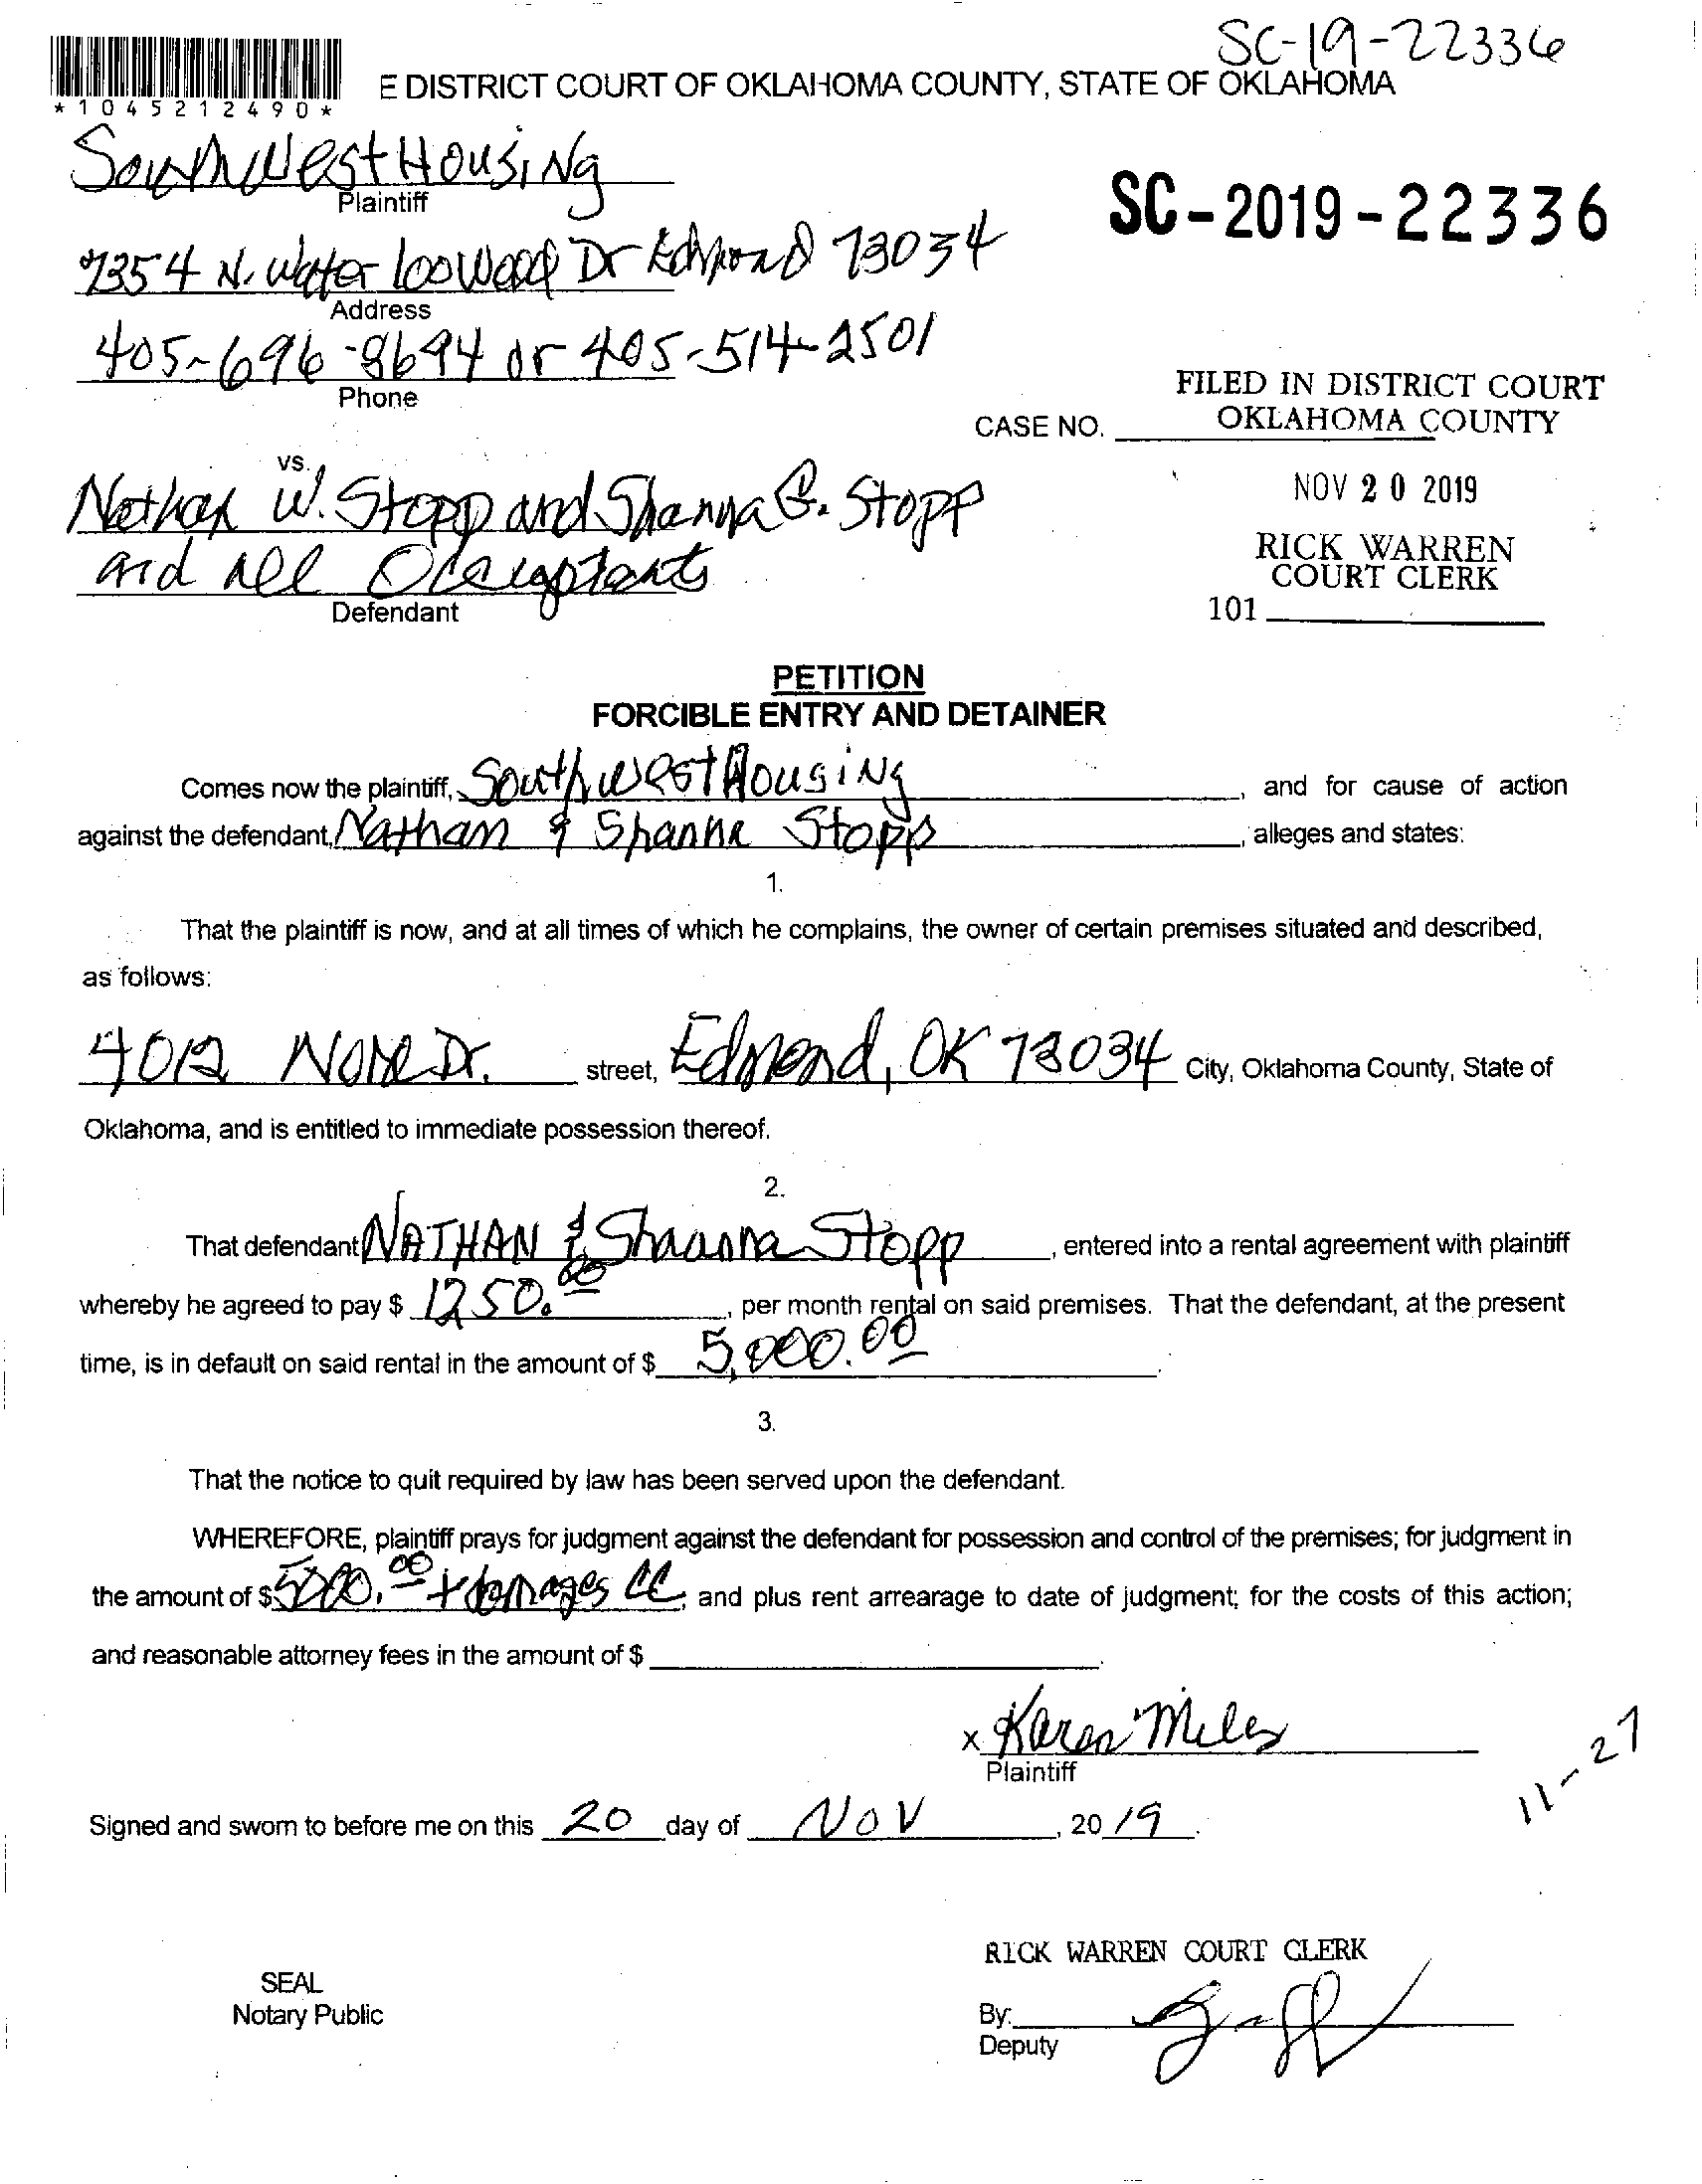 SC-19-22336
E DISTRICT COURT OF OKLAHOMA COUNTY, STATE OF OKLAHOMA
*1045212490*
SouthWest HousiNg
Plaintiff
SC-2019-22336
7354 N. Dr Edmond 73034
Address
405-696-8694 or 405-514-2501
Phone
FILED IN DISTRICT COURT
OKLAHOMA COUNTY
CASE NO.
vs.
NOV 20 2019
Nathan W. Stopp and Shanna G. Stopp
and all
Defendant
RICK WARREN
COURT CLERK
101
PETITION
FORCIBLE ENTRY AND DETAINER
Comes now the plaintiff, Southwest HousiNg, and for cause of action
against the defendant, Nathan & Shanna Stopp, alleges and states:
1.
That the plaintiff is now, and at all times of which he complains, the owner of certain premises situated and described,
as follows:
4012 Dr. street, Edmond, OK 73034 City, Oklahoma County, State of
Oklahoma, and is entitled to immediate possession thereof.
2.
That defendant NATHAN & Shanna Stopp, entered into a rental agreement with plaintiff
whereby he agreed to pay $ 1250.00, per month rental on said premises. That the defendant, at the present
time, is in default on said rental in the amount of $ 5,000.00.
3.
That the notice to quit required by law has been served upon the defendant.
WHEREFORE, plaintiff prays for judgment against the defendant for possession and control of the premises; for judgment in
the amount of $ 5000.00 + damages CC, and plus rent arrearage to date of judgment; for the costs of this action;
and reasonable attorney fees in the amount of $.
x Karen Miles
Plaintiff
11-27
Signed and sworn to before me on this 20 day of NOV, 20 19.
RICK WARREN COURT CLERK
SEAL
Notary Public
By:
Deputy